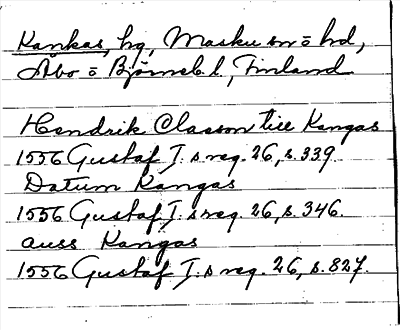 Kankas, hg, Masku sn o hd,
Åbo o Björneb. l., Finland
Hendrik Classon till Kangas
1556 Gustaf I. s reg. 26, s. 339.
Datum Kangas
1556 Gustaf I. s reg. 26, s. 346.
auss Kangas
1556 Gustaf I. s reg. 26, s. 827.